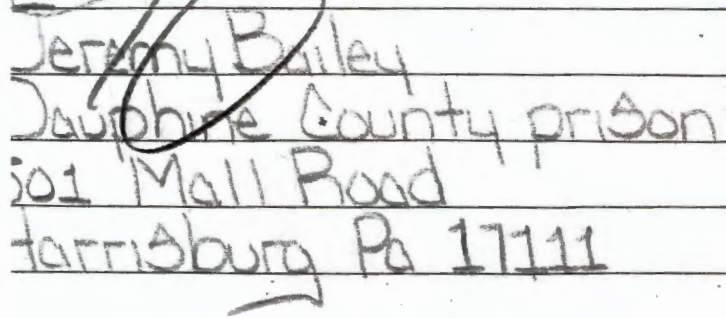 Jeremy Bailey
Dauphine County prison
501 Mall Road
Harrisburg Pa 17111